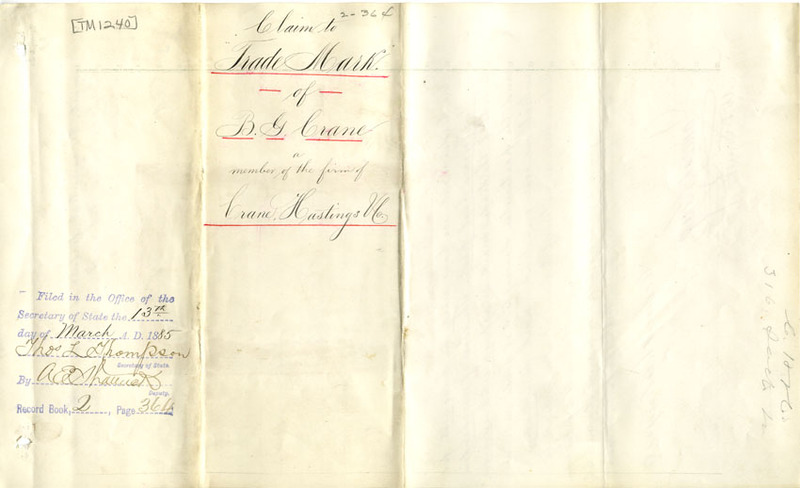 [TM1240]
2-364
Claim to
"Trade Mark"
— of —
B. G. Crane
a
member of the firm of
Crane, Hastings & Co.
Filed in the Office of the
Secretary of State the 13th
day of March A. D. 1885
Thos L Thompson
Secretary of State.
By A E
Deputy.
Record Book, 2, Page 364